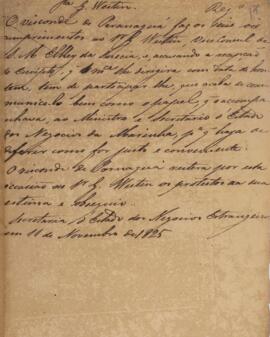 G. Westin.
O visconde de Paranaguá faz os seus
cumprimentos ao Sr. G. Westin Vice Consul de
S. M. ElRey da Suecia, e accusando a recepção
do Officio, q̃ o mesmo lhe dirigira com data de hon
tem, tem de participar lhe, que acaba de com
municalo bem como o papel, q̃ o accompa
nhava, ao Ministro e Secretario d'Estado
dos Negocios da Marinha, p.ª q̃ haja de
deferir como for justo e conveniente.
O visconde de Paranaguá reitera por esta
occasião ao Sr. G. Westin os protestos da sua
estima e
Secretaria d'Estado dos Negocios Estrangeiros
em 11 de Novembro de 1825